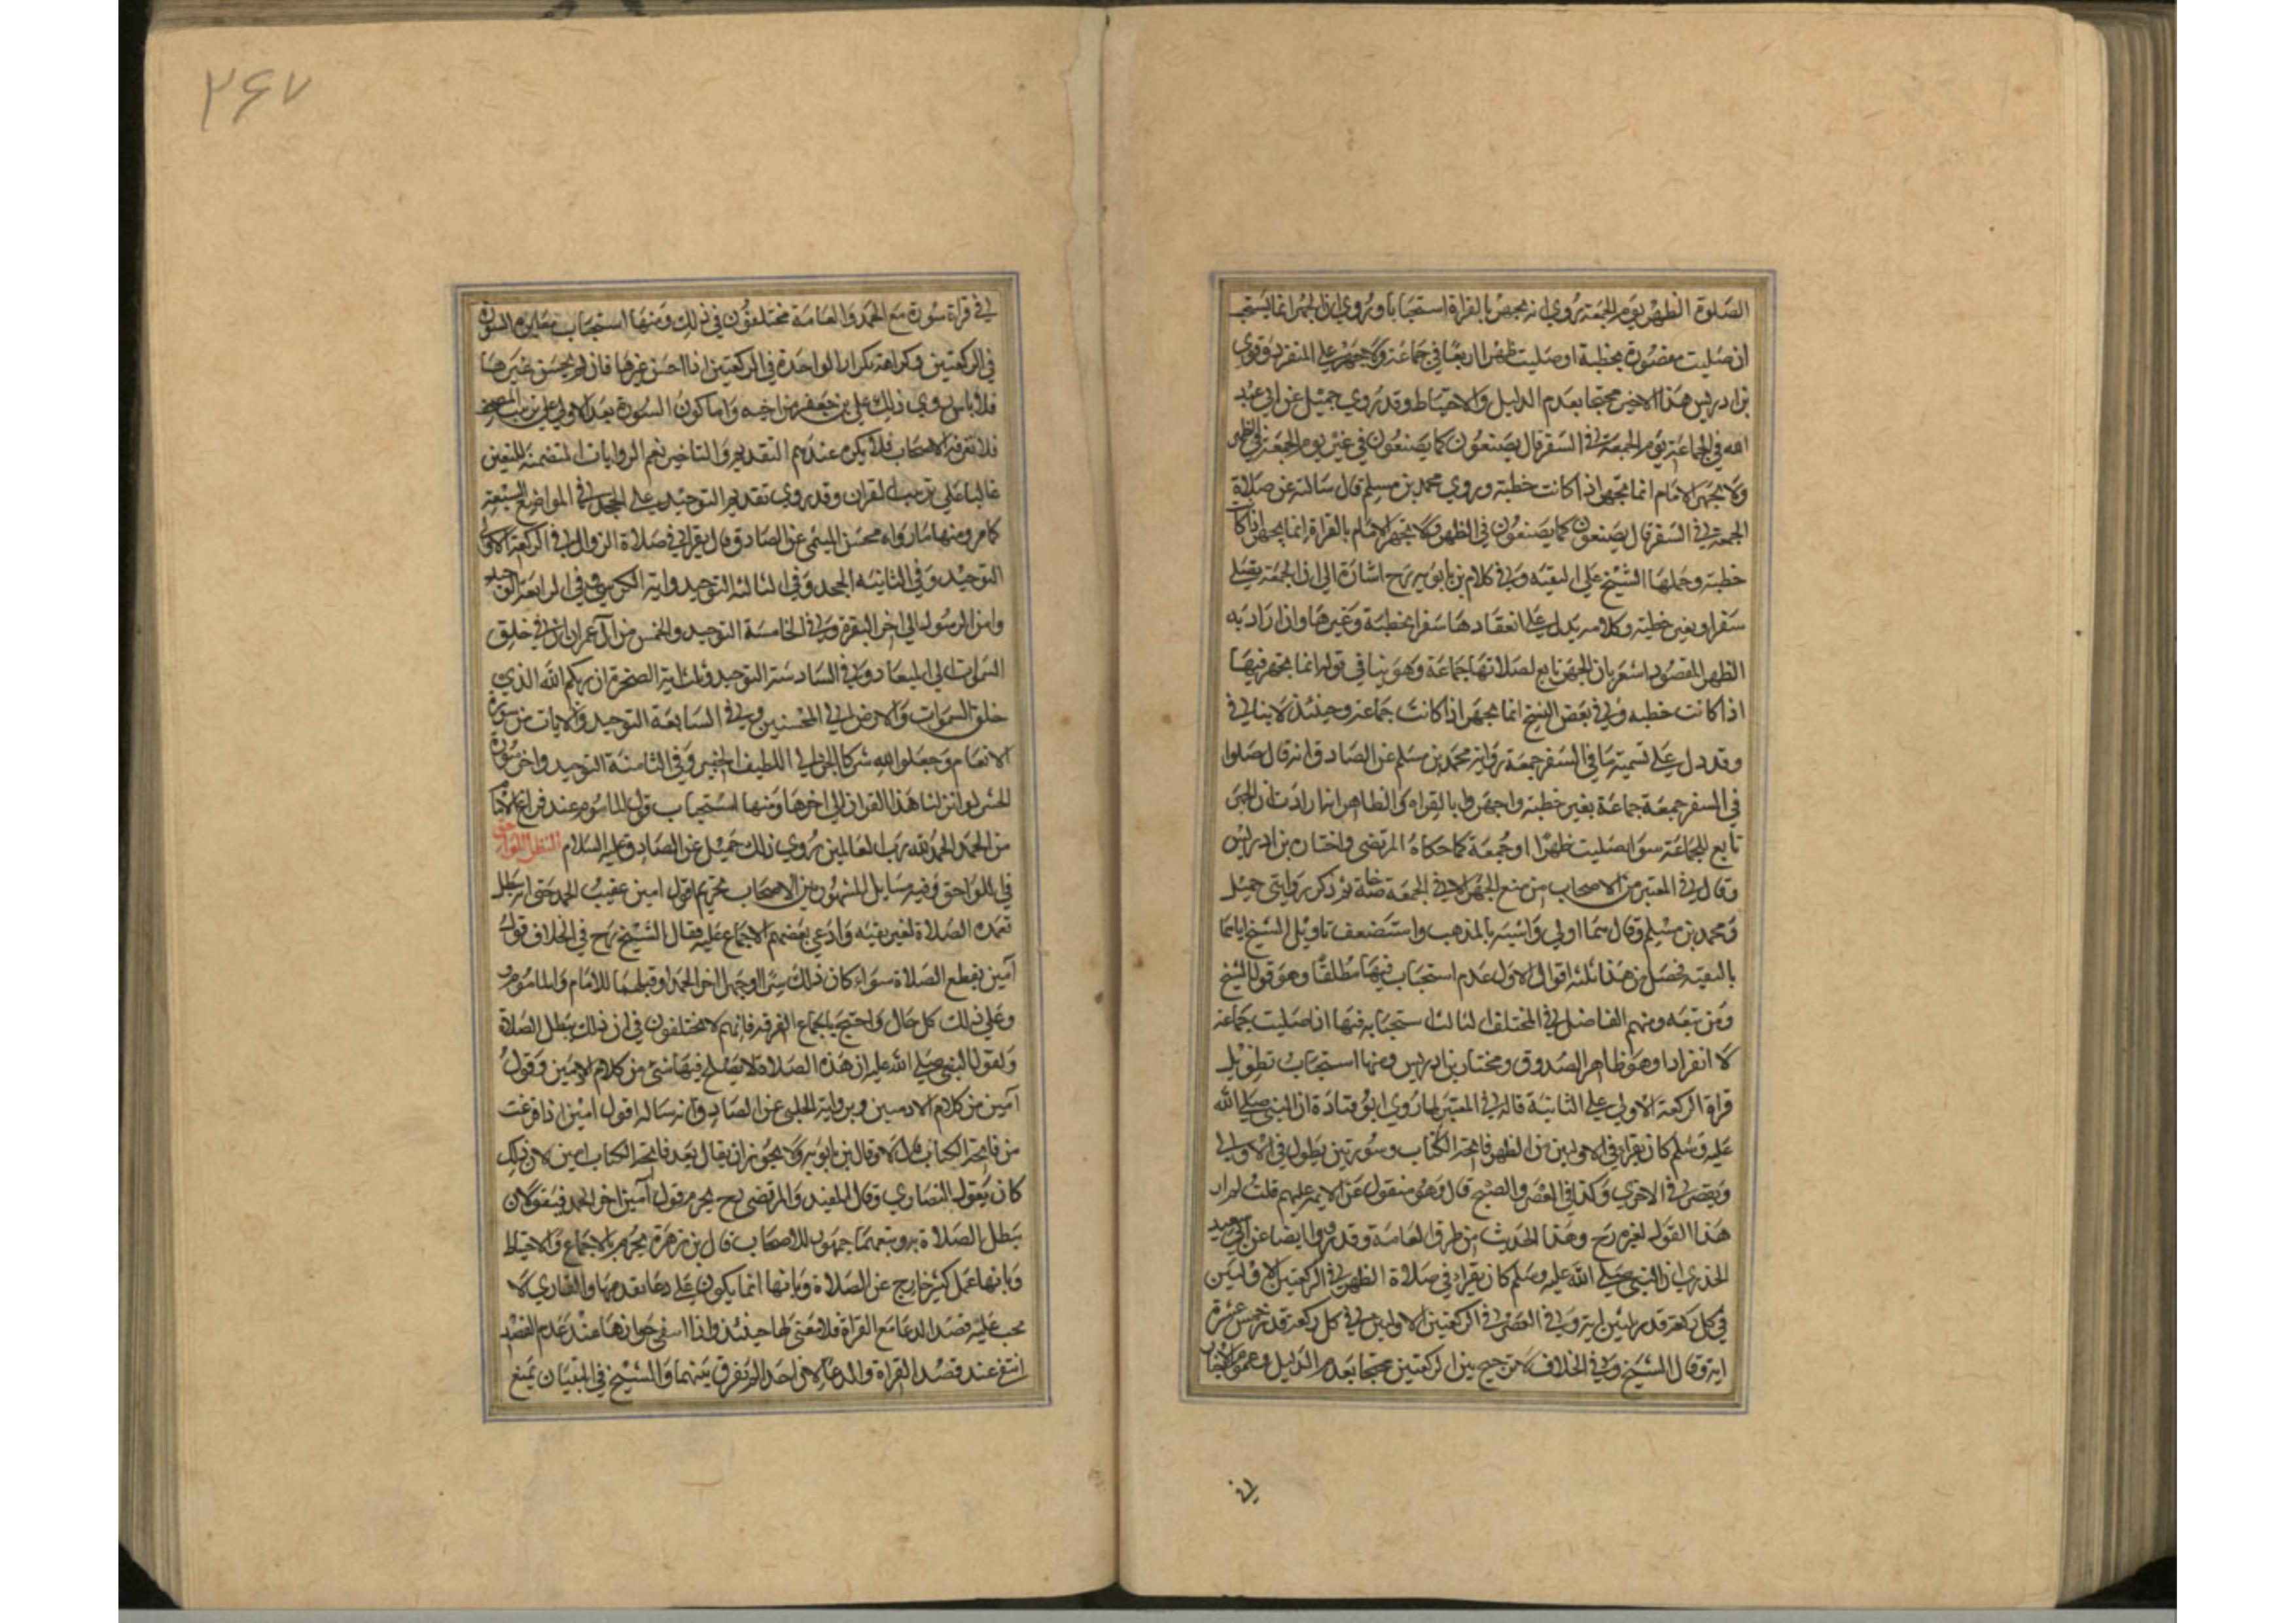 الصلوة الظهر يوم الجمعة روي انه يجهر بالقراة استحبابا وروي ان الجهر انما يستحب
ان صليت مقصورة بخطبة او صليت ظهرا اربعا في جماعة ولا جهر على المنفرد وقوى
بن ادريس هذا الاخير محتجا بعدم الدليل والاحتياط وقد روي جميل عن ابي عبد
الله في الجماعة يوم الجمعة في السفر قال يصنعون كما يصنعون في غير يوم الجمعة في الظهر
ولا يجهر الامام انما يجهر اذا كانت خطبة وروي محمد بن مسلم قال سالته عن صلاة
الجمعة في السفر قال يصنعون كما يصنعون في الظهر ولا يجهر الامام بالقراة انما يجهر اذا كانت
خطبة وحملها الشيخ على التقية وفي كلام بن بابويه رح اشارة الى ان الجمعة يصلى
سفرا وبغير خطبة وكلامه يدل على انعقادها سفرا بخطبة وغيرها وان اراد به
الظهر المقصود اشعر بان الجهر تابع لصلاتها جماعة وهو ينافي قوله انما يجهر فيها
اذا كانت خطبه وفي بعض النسخ انما يجهر اذا كانت جماعة وحينئذ لا ينافي
وقد دل على تسمية ما في السفر جمعة رواية محمد بن مسلم عن الصادق انه قال صلوا
في السفر جمعة جماعة بغير خطبة واجهروا بالقراه والظاهر انها رادت ان الجهر
تابع للجماعة سوا صليت ظهرا او جمعة كما حكاه المرتضى واختاره بن ادريس
وقال في المعتبر من الاصحاب من منع الجهر الا في الجمعة خاصة ثم ذكر روايتي جميل
ومحمد بن مسلم وقال هما اولي واشبه بالمذهب واستضعف تاويل الشيخ اياهما
بالتقية فحصل من هذا ثلثه اقوال الاول عدم استحباب فيها مطلقا وهو قول الشيخ
ومن تبعه ومنهم الفاضل في المختلف الثالث استحبابه فيها اذا صليت جماعة
لا انفرادا وهو ظاهر الصدوق ومختار بن ادريس ومنها استحباب تطويل
قراة الركعة الاولي على الثانية قاله في المعتبر لما روي ابو قتادة ان النبي صلى الله
عليه وسلم كان يقرا في الاوليين من الظهر فاتحة الكتاب وسورتين يطول في الاولي
ويقصر في الاخري وكذا في العصر والصبح قال وهو منقول عن الايمة عليهم قلت لم ار
هذا القول لغيره رح وهذا الحديث من طرق العامة وقد رووا ايضا عن ابي سعيد
الخدري ان النبي صلى الله عليه وسلم كان يقرا في صلاة الظهر في الركعتين الاوليين
في كل ركعة قدر ثلثين اية وفي العصر في الركعتين الاوليين في كل ركعة قدر خمس عشرة
اية وقال الشيخ في الخلاف لا ترجيح بين الركعتين محتجا بعدم الدليل وعموم الاخبار
في
۲۶۷
في قراة سورة مع الحمد والعامة مختلفون في ذلك ومنها استحباب مغايرة السورة
في الركعتين وكراهة تكرار الواحدة في الركعتين اذا احسن غيرها فان لم يحسن غيرها
فلا باس روي ذلك علي بن جعفر عن اخيه واما كون السورة بعد الاولي على ترتيب المصحف
فلا تعرفه الاصحاب فلا يكره عندهم التقديم والتاخير نعم الروايات المتضمنة للتعيين
غالبا على ترتيب القران وقد روي تقديم التوحيد على الجحد في المواضع السبعة
كما مر ومنها ما رواه محسن الميثمي عن الصادق قال يقرا في صلاة الزوال في الركعة الاولى
التوحيد وفي الثانية الجحد وفي الثالثة التوحيد واية الكرسي وفي الرابعة التوحيد
وامن الرسول الي اخر البقرة وفي الخامسة التوحيد والخمس من آل عمران ان في خلق
السموات الى الميعاد وفي السادسة التوحيد وثلث اية السخرة ان ربكم الله الذي
خلق السموات والارض الي المحسنين وفي السابعة التوحيد والايات من سورة
الانعام وجعلوا لله شركا الجن الي اللطيف الخبير وفي الثامنة التوحيد واخر سورة
الحشر لو انزلنا هذا القران الي اخرها ومنها استحباب قول الماموم عند فراغ الامام
من الحمد الحمد لله رب العالمين روي ذلك جميل عن الصادق عليه السلام النظر اللواحق
في اللواحق وفيه مسايل المشهور بين الاصحاب تحريم قول امين عقيب الحمد حتى انه يبطل
تعمده الصلاة لغير تقيه وادعي بعضهم الاجماع عليه فقال الشيخ رح في الخلاف قول
آمين يقطع الصلاة سواء كان ذلك سرا او جهرا اخر الحمد او قبلها للامام والماموم
وعلي ذلك كل حال واحتج باجماع الفرقه فانهم لا يختلفون في ان ذلك يبطل الصلاة
ولقول النبي صلى الله عليه ان هذه الصلاة لا يصلح فيها شي من كلام الادميين وقول
آمين من كلام الادميين وبرواية الحلبي عن الصادق انه ساله اقول امين اذا فرغت
من فاتحة الكتاب قال لا وقال بن بابويه ولا يجوز ان يقال بعد فاتحة الكتاب امين لان ذلك
كان يقوله النصاري وقال المفيد والمرتضى رح يحرم قول آمين اخر الحمد
يبطل الصلاة به وتبعهما جمهور الاصحاب قال بن زهرة يحرم بالاجماع والاحتياط
وبانها عمل كثير خارج عن الصلاة وبانها انما يكون على دعا تقدمها والقاري لا
يجب عليه قصد الدعا مع القراة فلا معنى لها حينئذ واذا انتفى جوازها عند عدم القصد
انتفى عند قصد القراة والدعا لان احدا لم يفرق بينهما والشيخ في التبيان يمنع